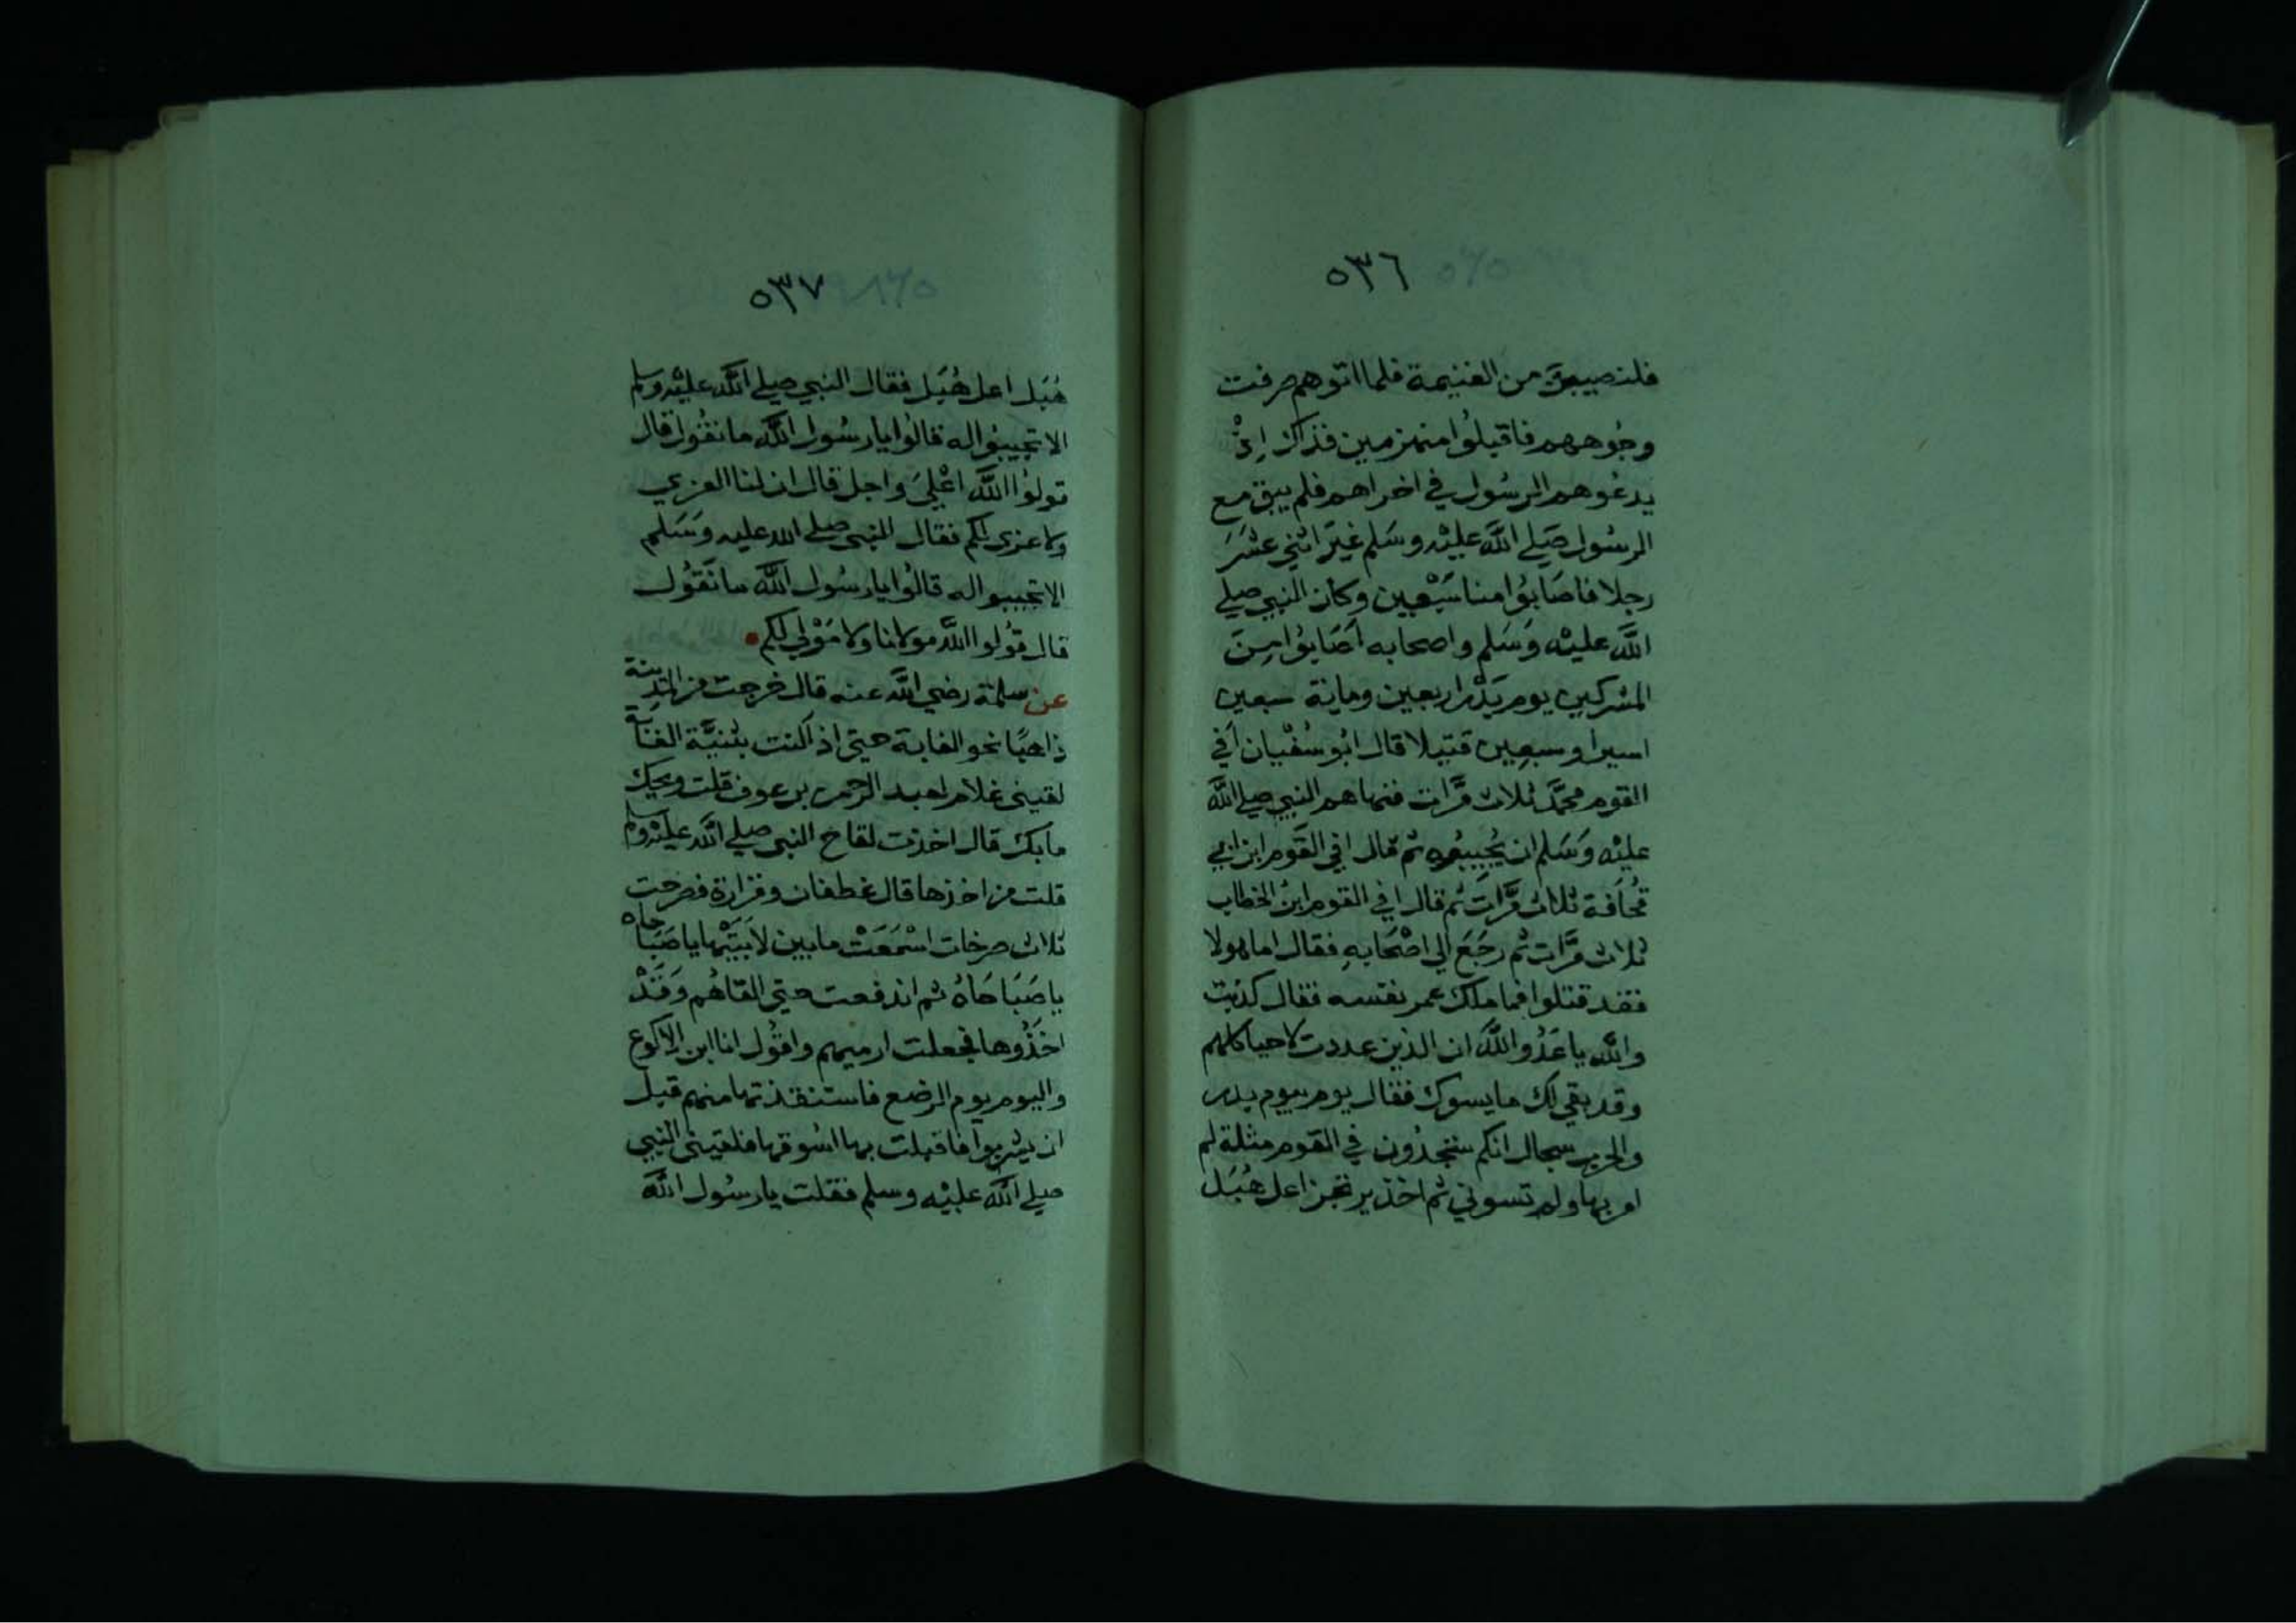 ٥٣٦
فلنصيبن من الغنيمة فلما اتوهم صرفت
وجُوههم فاقبلُوا منهزمين فذاك اِذْ
يدعُوهم الرسُول في اخراهم فلم يبق مع
الرسُول صَلي اللَّه عليْه وسَلم غيَر اثني عشَر
رجلا فاصَابُوا منا سَبْعين وكان النبي صلي
اللَّه عليْه وَسَلم واصحابه اَصَابوُا مِنَ
المشركين يوم بَدْر اربعين وماية سبعين
اسيرا وسبعِين قتيلا قال ابُو سُفْيان اَفي
القوم محمَّد ثلاث مَّرات فنهاهم النبي صلي اللَّه
عليْه وَسَلم ان يُجِيبُوه ثم قال افي القَوم ابن ابي
قُحافَة ثلاث مَّرات ثم قال افي القوم ابنُ الخطاب
ثلاث مَّرات ثم رجَعَ الي اصْحَابهِ فقال اما هولا
فقد قتلوا فما ملك عمر نفسه فقال كذبت
واللَّه يا عَدُو اللَّه ان الذين عددت لاحيا كلهم
وقد بقي لك ما يسوك فقال يوم بيوم بدر
والحرب سجال انكم ستجدُون في القوم مثلة لم
امر بها ولم تسوني ثم اخذ يرتجز اعل هُبَل
٥٣٧
هُبَل اعل هُبَل فقال النبي صلي اللَّه عليْه وسلم
الا تجيبُوا له قالُوا يا رسُول اللَّه ما نقُول قال
قولوُا اللَّه اعْليَ واجل قال ان لنا العزي
ولا عزي لكم فقال النبي صلي الله عليه وَسَلم
الا تجيبوا له قالوُا يا رسُول اللَّه ما نَقوُل
قال قوُلوا اللَّه مولانا ولا مَوْلي لكم
عن سلمَة رضي اللَّه عنه قال خرجت من المَدِينة
ذاهبًا نحو الغابة حتي اذا كنت بثنيَّة الغَابة
لقيني غلام لعبد الرحمن بن عوف قلت ويحك
ما بك قال اخذت لقاح النبي صلي اللَّه عليْه وسلم
قلت من اخذها قال غطفان وفزارة فصرخت
ثلاث صرخات اسْمَعَتْ ما بين لابَتَيْها يا صَبَاحاه
يا صَبَاحَاهُ ثم اندفعت حتي القاهُم وَقَدْ
اخَذُوها فجعلت ارميهم واقُول انا ابن الاكوع
واليوم يوم الرضع فاستنقذتها منهم قبل
ان يشربوا فاقبلت بها اسُوقها فلقيني النبي
صلي اللَّه عليْه وسلم فقلت يا رسُول اللَّه